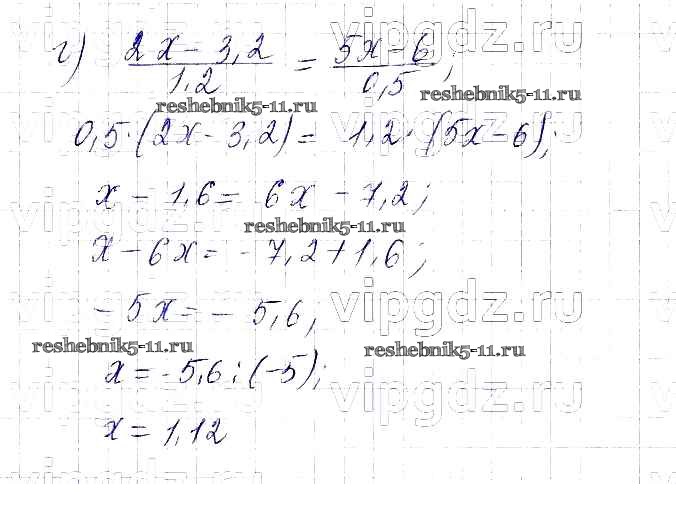 vipgdz.ru vipgdz.ru
г) (2x - 3,2)/1,2 = (5x - 6)/0,5;
reshebnik5-11.ru reshebnik5-11.ru
0,5·(2x - 3,2) = 1,2·(5x - 6);
vipgdz.ru vipgdz.ru
x - 1,6 = 6x - 7,2;
vipgdz.ru vipgdz.ru
reshebnik5-11.ru
x - 6x = -7,2 + 1,6;
-5x = -5,6;
vipgdz.ru vipgdz.ru
reshebnik5-11.ru reshebnik5-11.ru
x = -5,6 : (-5);
vipgdz.ru vipgdz.ru
x = 1,12
vipgdz.ru vipgdz.ru